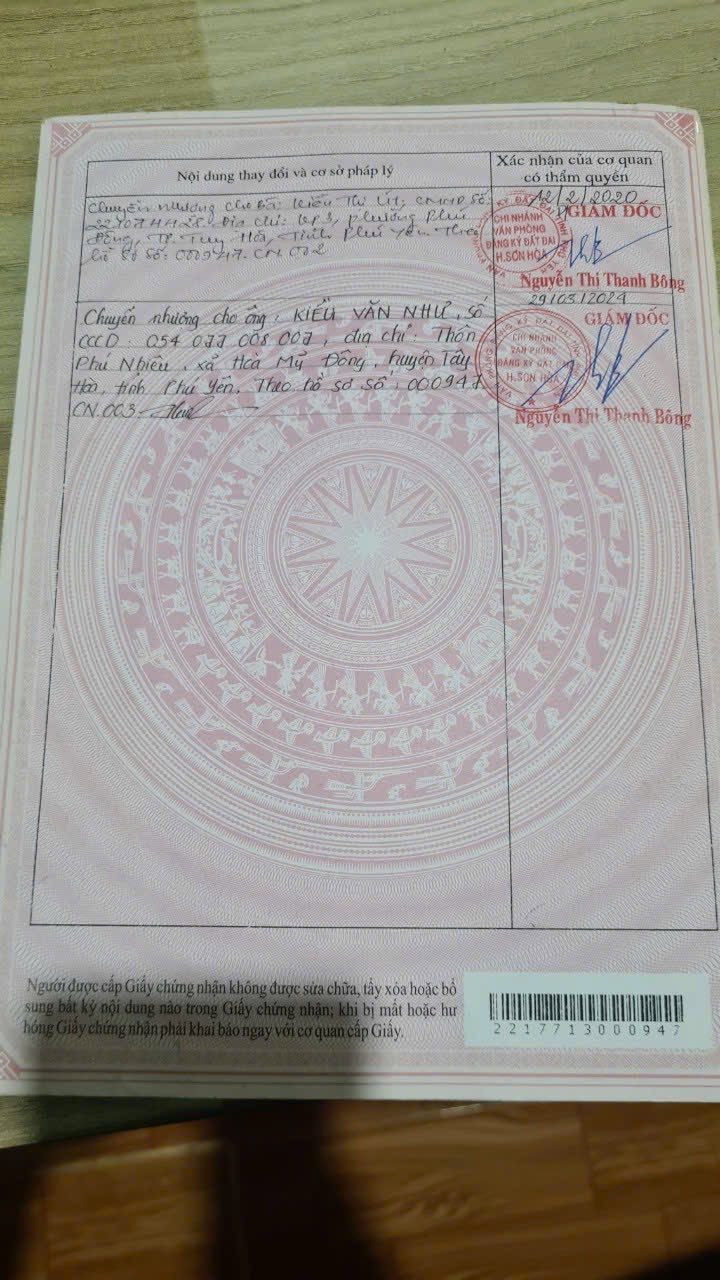 Nội dung thay đổi và cơ sở pháp lý
Xác nhận của cơ quan
có thẩm quyền
Chuyển nhượng cho Bà: Kiều Thị Út; CMND Số:
Địa chỉ: KP3, phường Phú
Đông, TP. Tuy Hòa, Tỉnh Phú Yên. Theo
hồ sơ số: 000947.CN.002
12/2/2020
GIÁM ĐỐC
CHI NHÁNH
VĂN PHÒNG
ĐĂNG KÝ ĐẤT ĐAI
H.SƠN HÒA
Nguyễn Thị Thanh Bông
Chuyển nhượng cho ông: KIỀU VĂN NHƯ, số
CCCD: 054 077 008 007, địa chỉ: Thôn
Phú Nhiêu, xã Hoà Mỹ Đông, huyện Tây
Hoà, tỉnh Phú Yên. Theo hồ sơ số: 000947.
CN.003
29/03/2024
GIÁM ĐỐC
CHI NHÁNH
VĂN PHÒNG
ĐĂNG KÝ ĐẤT ĐAI
H.SƠN HÒA
Nguyễn Thị Thanh Bông
Người được cấp Giấy chứng nhận không được sửa chữa, tẩy xóa hoặc bổ
sung bất kỳ nội dung nào trong Giấy chứng nhận; khi bị mất hoặc hư
hỏng Giấy chứng nhận phải khai báo ngay với cơ quan cấp Giấy.
2217713000947